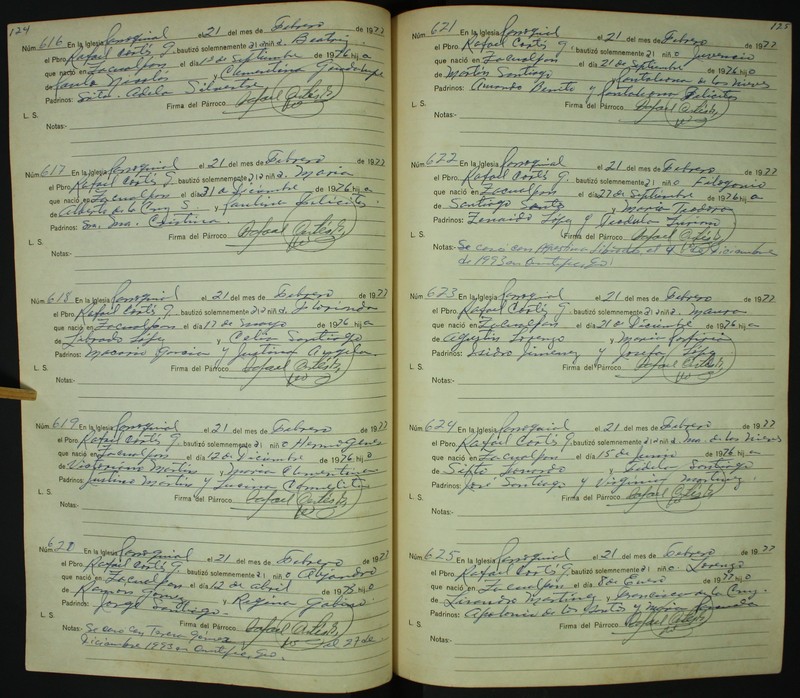 124
Núm. 616 En la Iglesia Parroquial el 21 del mes de Febrero de 1977
el Pbro. Rafael Cortés G. bautizó solemnemente a la niña Beatriz
que nació en Zacualpan el día 12 de Septiembre de 1976 hija
de Santo Nicolás y Clementina Guadalupe
Padrinos: Srita. Adela Silvestre
Firma del Párroco
L. S.
Notas:-
Núm. 617 En la Iglesia Parroquial el 21 del mes de Febrero de 1977
el Pbro. Rafael Cortés G. bautizó solemnemente a la niña Maria
que nació en Zacualpan el día 31 de Diciembre de 1976 hija
de Alberto de la Cruz S. y Paulina
Padrinos: Sra. Ma. Cristina
Firma del Párroco
L. S.
Notas:-
Núm. 618 En la Iglesia Parroquial el 21 del mes de Febrero de 1977
el Pbro. Rafael Cortés G. bautizó solemnemente a la niña Florinda
que nació en Zacualpan el día 17 de mayo de 1976 hija
de Librado López y Celia Santiago
Padrinos: Macario Garcia y Justina Angela
Firma del Párroco
L. S.
Notas:-
Núm. 619 En la Iglesia Parroquial el 21 del mes de Febrero de 1977
el Pbro. Rafael Cortés G. bautizó solemnemente al niño Hermógenes
que nació en Zacualpan el día 12 de Diciembre de 1976 hijo
de Victoriano Martín y Maria Clementina
Padrinos: Justino Martín y Luciana
Firma del Párroco
L. S.
Notas:-
Núm. 620 En la Iglesia Parroquial el 21 del mes de Febrero de 1977
el Pbro. Rafael Cortés G. bautizó solemnemente al niño Alejandro
que nació en Zacualpan el día 12 de abril de 1975 hijo
de Ramón Gómez y Regina Gabino
Padrinos: Jorge Santiago
Firma del Párroco
L. S.
Notas: Se casó con Teresa Gómez el 27 de
Diciembre 1993 en

125
Núm. 621 En la Iglesia Parroquial el 21 del mes de Febrero de 1977
el Pbro. Rafael Cortés G. bautizó solemnemente al niño Juvencio
que nació en Zacualpan el día 21 de Septiembre de 1976 hijo
de Martín Santiago y Pantaleona de los Nieves
Padrinos: Amando Benito y Pantaleona Felicitas
Firma del Párroco
L. S.
Notas:-
Núm. 622 En la Iglesia Parroquial el 21 del mes de Febrero de 1977
el Pbro. Rafael Cortés G. bautizó solemnemente al niño Filogonio
que nació en Zacualpan el día 27 de Septiembre de 1976 hijo
de Santiago Santos y Maria Teodora
Padrinos: Zenaido López y Teodula
Firma del Párroco
L. S.
Notas:- Se casó con el 4 de Diciembre
de 1993 en
Núm. 623 En la Iglesia Parroquial el 21 del mes de Febrero de 1977
el Pbro. Rafael Cortés G. bautizó solemnemente a la niña Maura
que nació en Zacualpan el día 21 de Diciembre de 1976 hija
de Agustín Lorenzo y Maria Porfiria
Padrinos: Isidro Jimenez y Josefa López
Firma del Párroco
L. S.
Notas:-
Núm. 624 En la Iglesia Parroquial el 21 del mes de Febrero de 1977
el Pbro. Rafael Cortés G. bautizó solemnemente a la niña Ma. de los Nieves
que nació en Zacualpan el día 15 de Junio de 1976 hija
de Sixto Leonardo y Fidela Santiago
Padrinos: José Santiago y Virginia Martínez
Firma del Párroco
L. S.
Notas:-
Núm. 625 En la Iglesia Parroquial el 21 del mes de Febrero de 1977
el Pbro. Rafael Cortés G. bautizó solemnemente al niño Lorenzo
que nació en Zacualpan el día 8 de Enero de 1977 hijo
de Lisandro Martínez y Francisca de la Cruz
Padrinos: Apolonio de los Santos y Maria
Firma del Párroco
L. S.
Notas:-